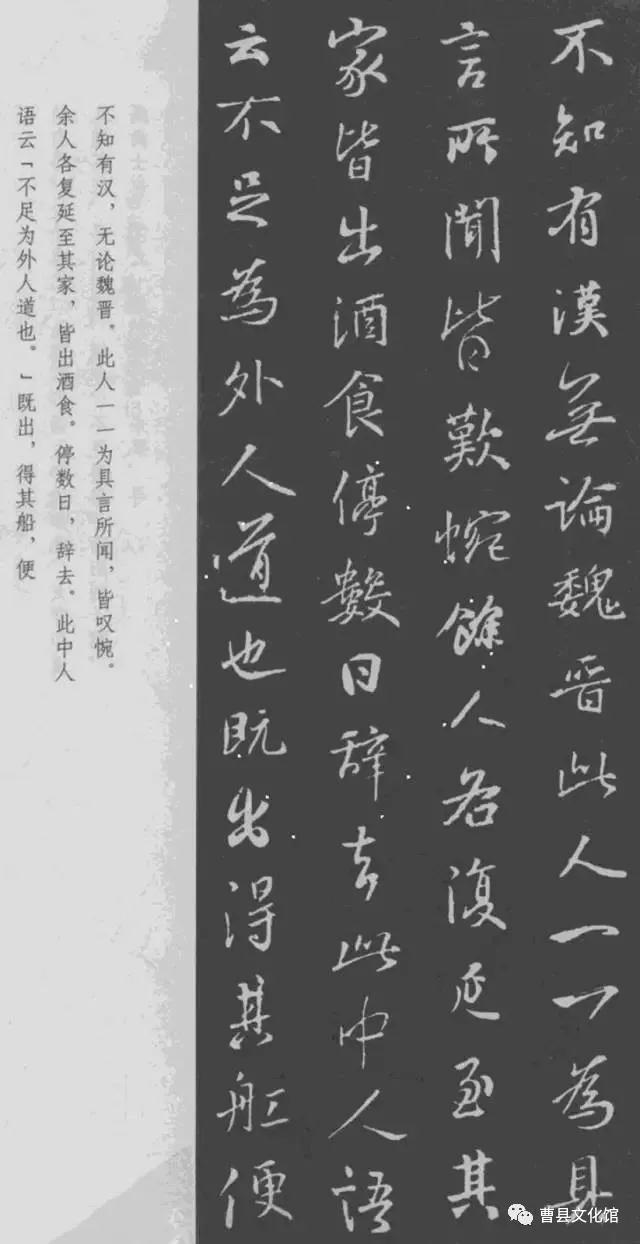 不知有漢無論魏晋此人一一為具
言所聞皆歎惋餘人各復延至其
家皆出酒食停數日辞去此中人語
云不足為外人道也既出得其舡便
不知有汉，无论魏晋。此人一一为具言所闻，皆叹惋。
余人各复延至其家，皆出酒食。停数日，辞去。此中人
语云「不足为外人道也。」既出，得其船，便
曹县文化馆